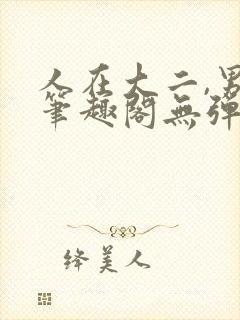 人在大二,男
笔趣阁无弹
绛美人